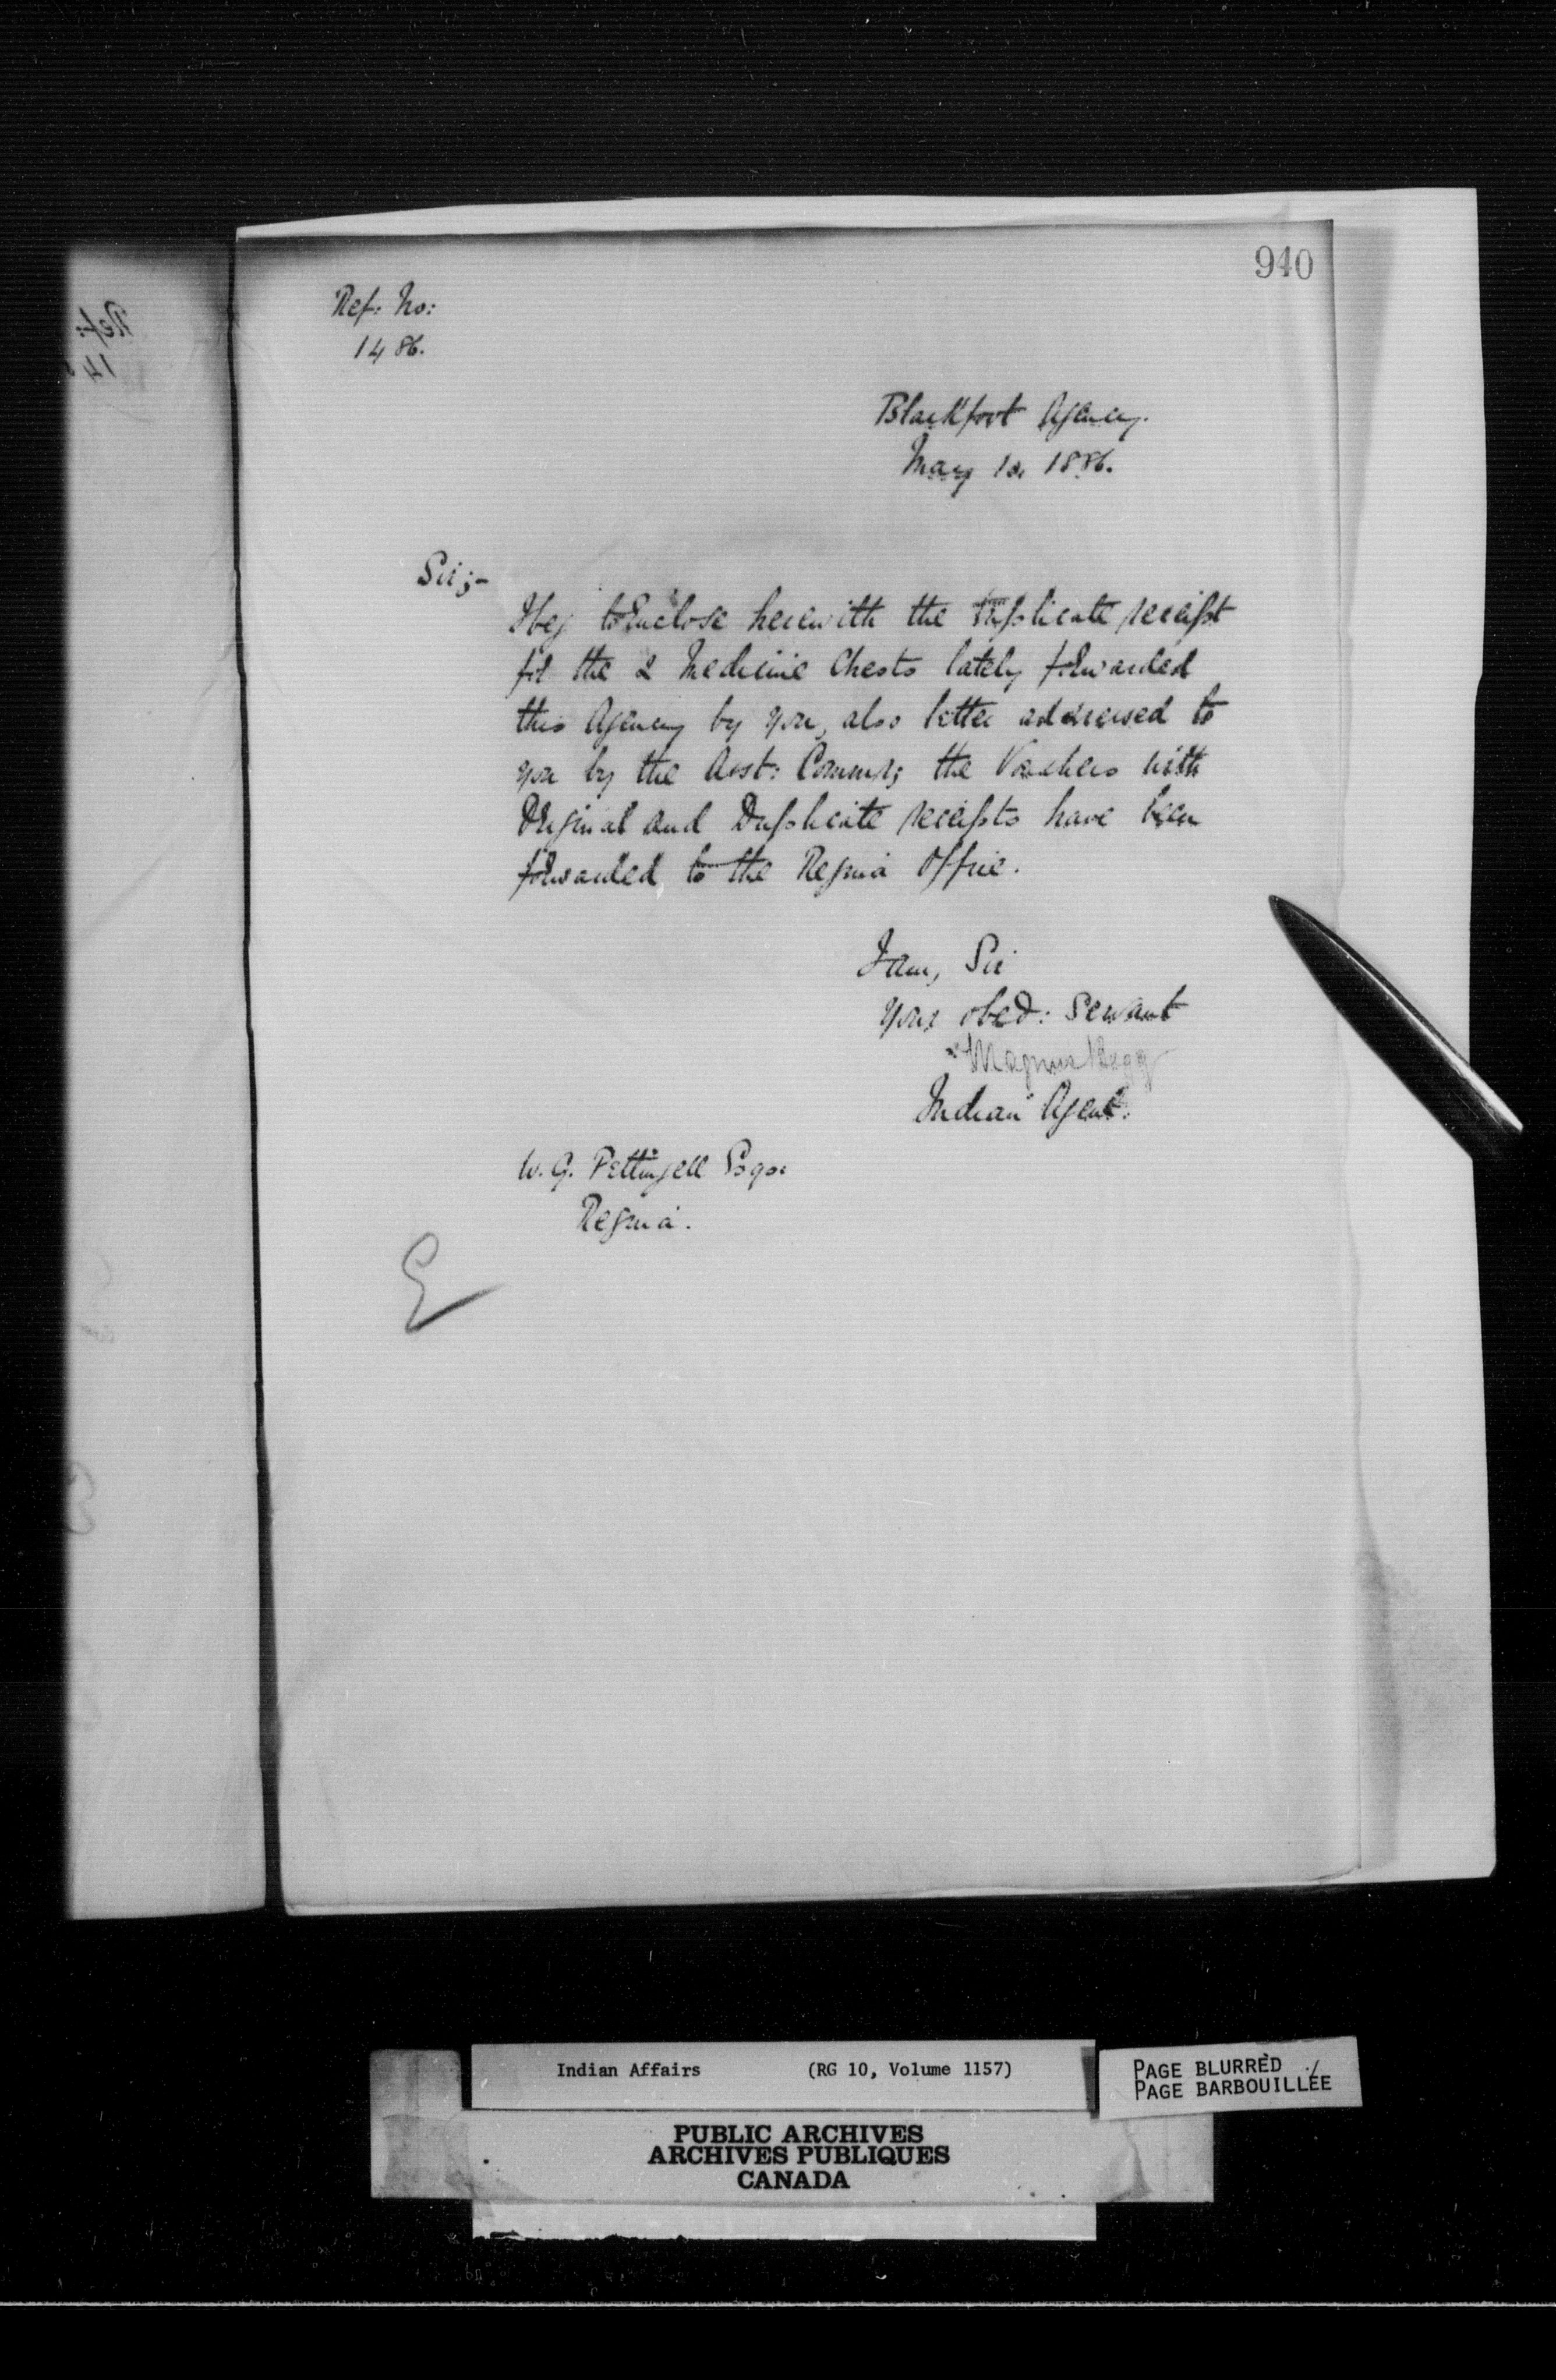 940
Ref: No:
1486.
Blackfoot Agency.
May 12, 1886.
Sir;-
I beg to Enclose herewith the Triplicate receipt
for the 2 Medicine Chests lately forwarded
this Agency by you, also letter addressed to
you by the Asst: Commr; the Vouchers with
Original and Duplicate receipts have been
forwarded to the Regina Office.
I am, Sir
Your obed: Servant
Magnus Begg
Indian Agent.
W. G. Pettingell Esqr
Regina.
Ref:
14
Indian Affairs (RG 10, Volume 1157)
PAGE BLURRED
PAGE BARBOUILLÉE
PUBLIC ARCHIVES
ARCHIVES PUBLIQUES
CANADA